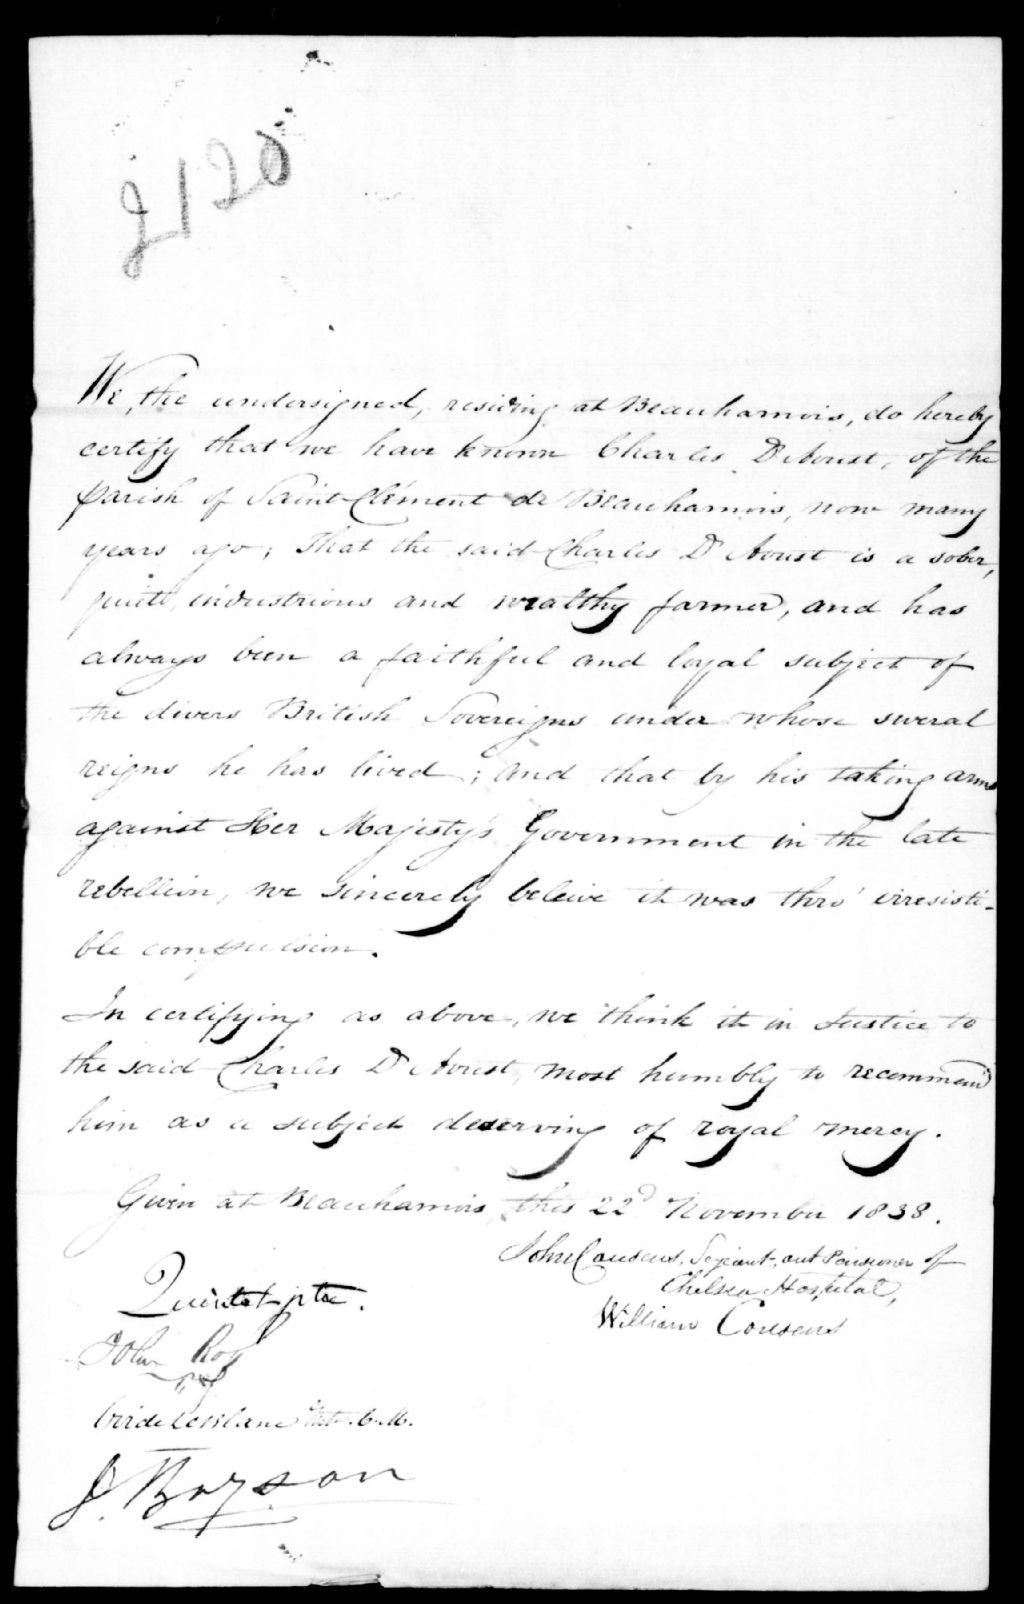 £120
We, the undersigned, residing at Beauharnois, do hereby
certify that we have known Charles D'Aoust, of the
parish of Saint Clément de Beauharnois, now many
years ago; That the said Charles D'Aoust is a sober,
quiete, industrious and wealthy farmer, and has
always been a faithful and loyal subject of
the divers British Sovereigns under whose several
reigns he has lived; and that by his taking arms
against Her Majesty's Government in the late
rebellion, we sincerely beleive it was thro' irresisti-
ble compulsion.
In certifying as above, we think it in Justice to
the said Charles D'Aoust, most humbly to recommend
him as a subject deserving of royal mercy.
Given at Beauharnois, this 22d November 1838.
John Cousens, Serjeant, out Pensioner of
Chelsea Hospital,
William Cousens
Quintal ptre.
John Roy
J. Boyson